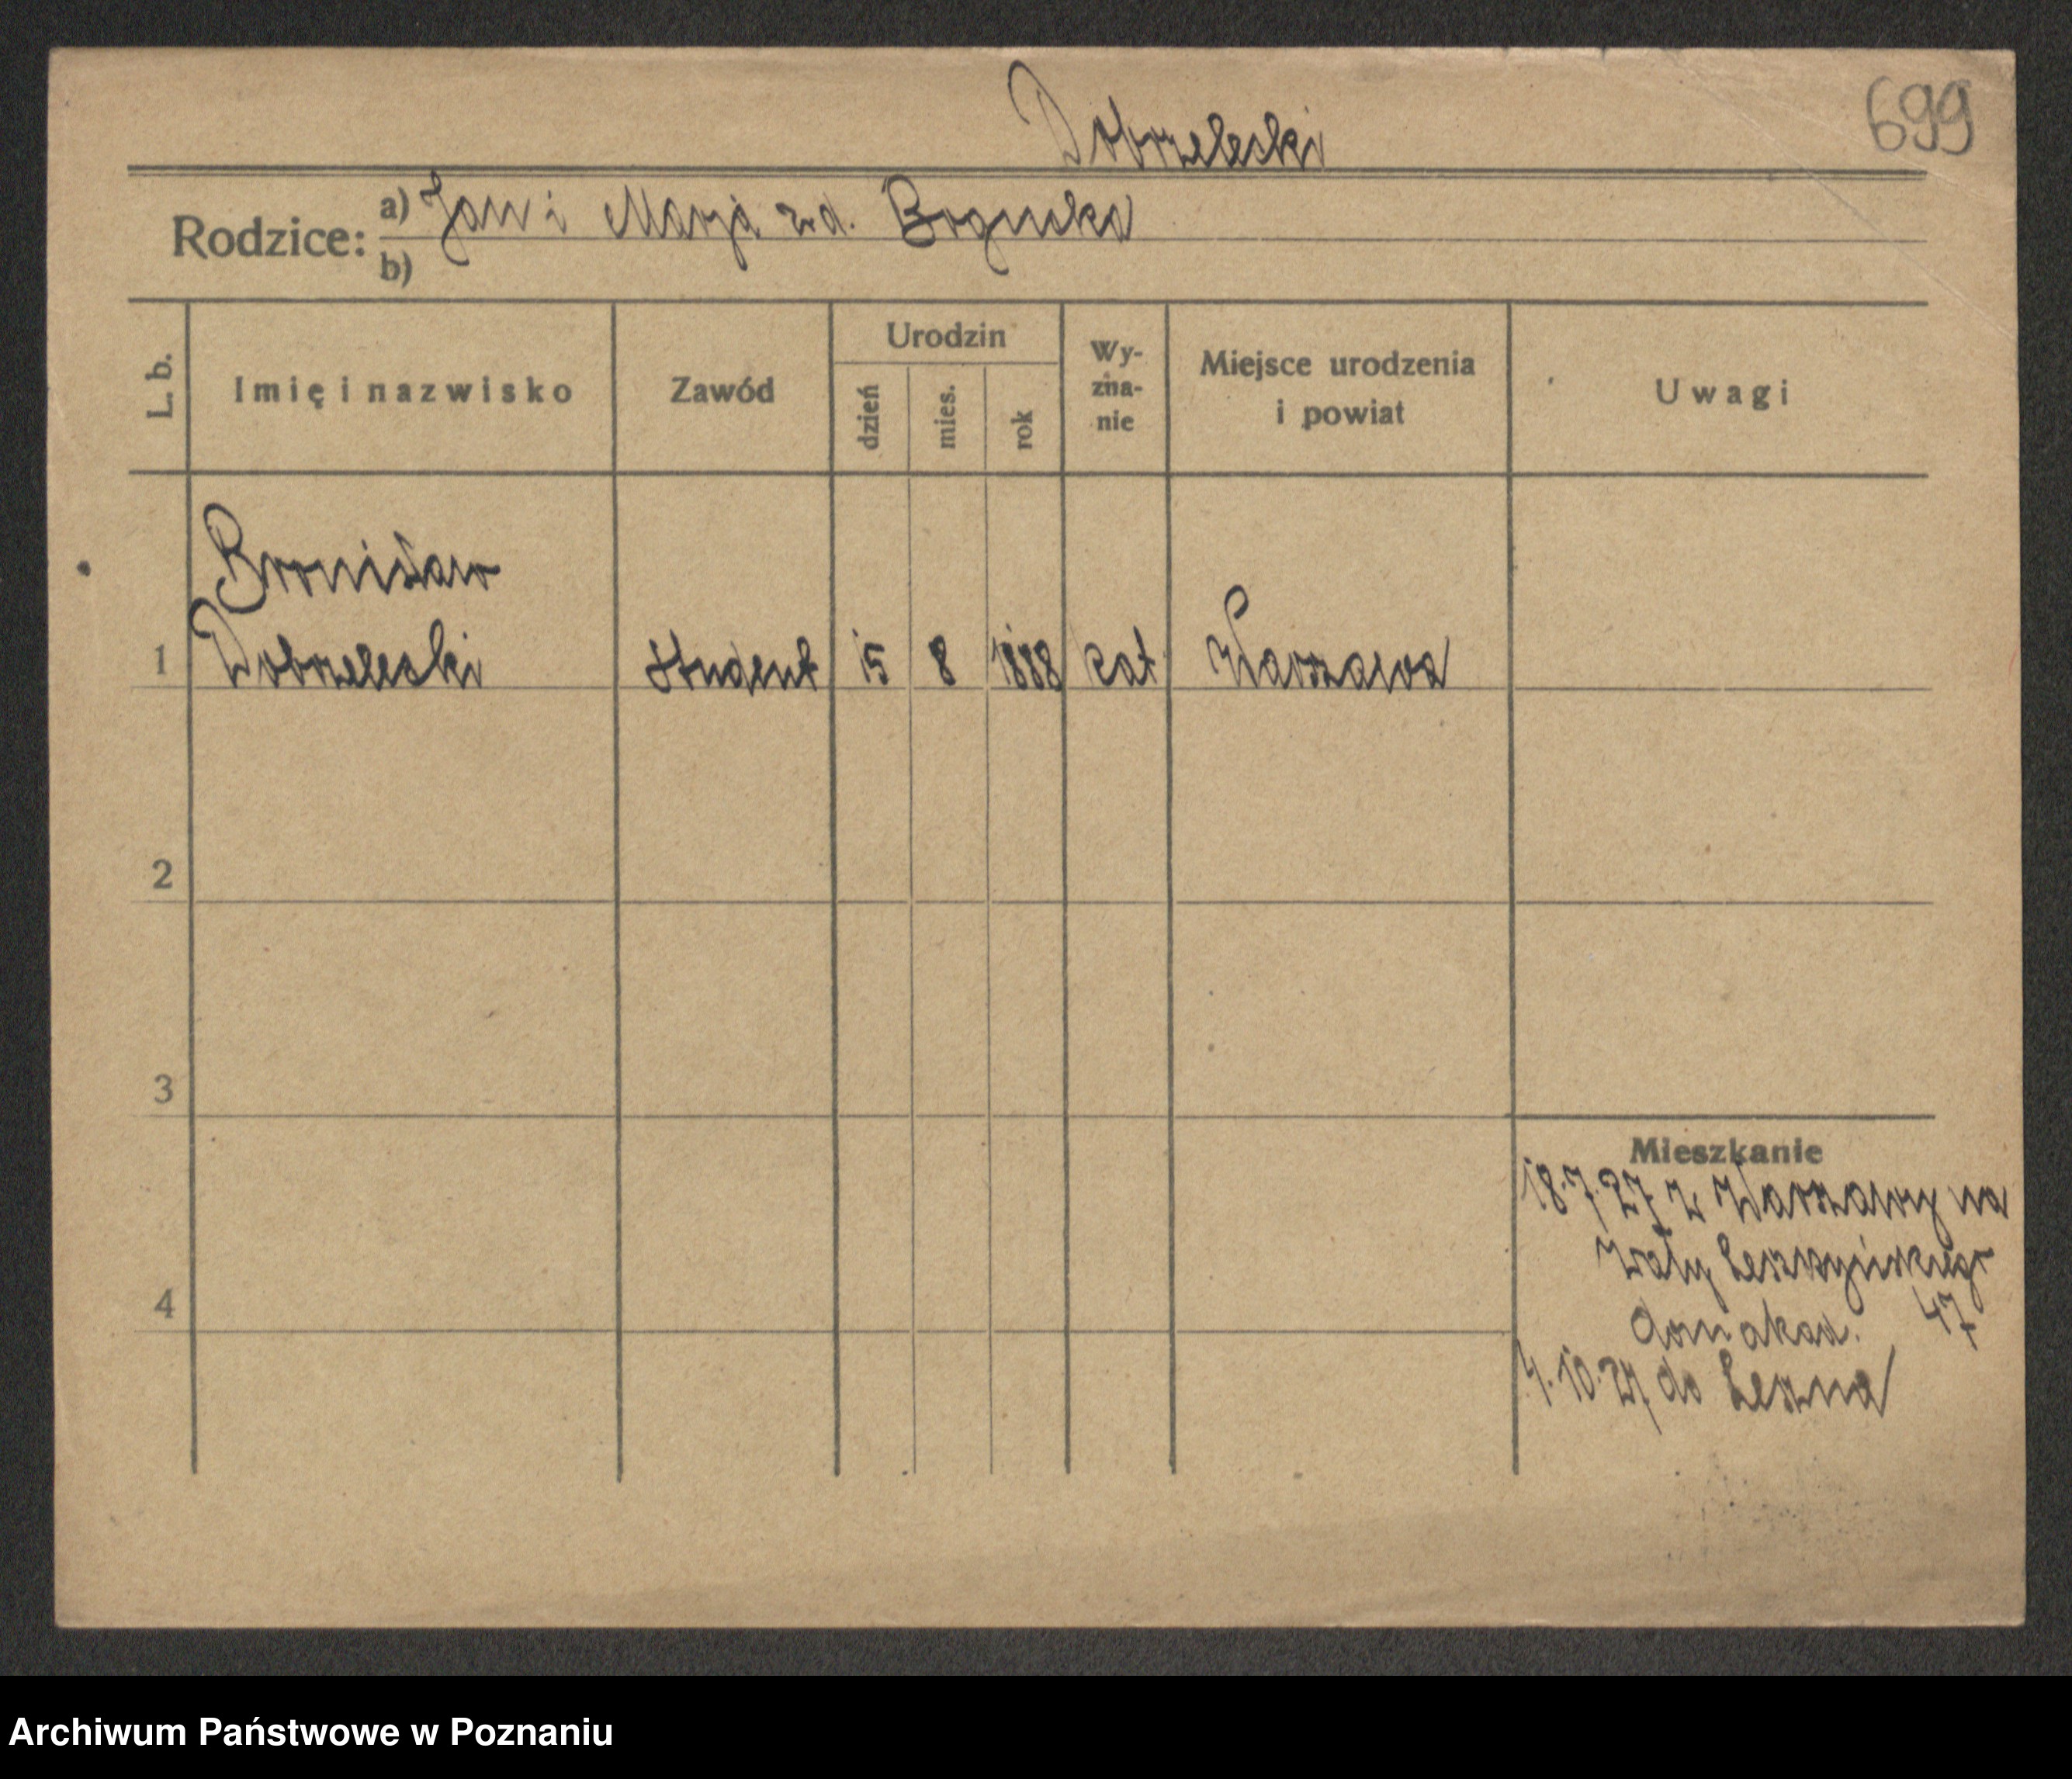 699
Dobrzeleski
Rodzice: a) Jan i Marja zd. Boguska
b)
L. b.
Imię i nazwisko
Zawód
Urodzin
dzień
mies.
rok
Wy-
zna-
nie
Miejsce urodzenia
i powiat
Uwagi
Bronisław
1 Dobrzeleski student 15 8 1888 kat Warszawa
2
3
4
Mieszkanie
18.7.27 z Warszawy na
Wały Leszczyńskiego
dom akad. 47
4.10.27 do Leszna
Archiwum Państwowe w Poznaniu